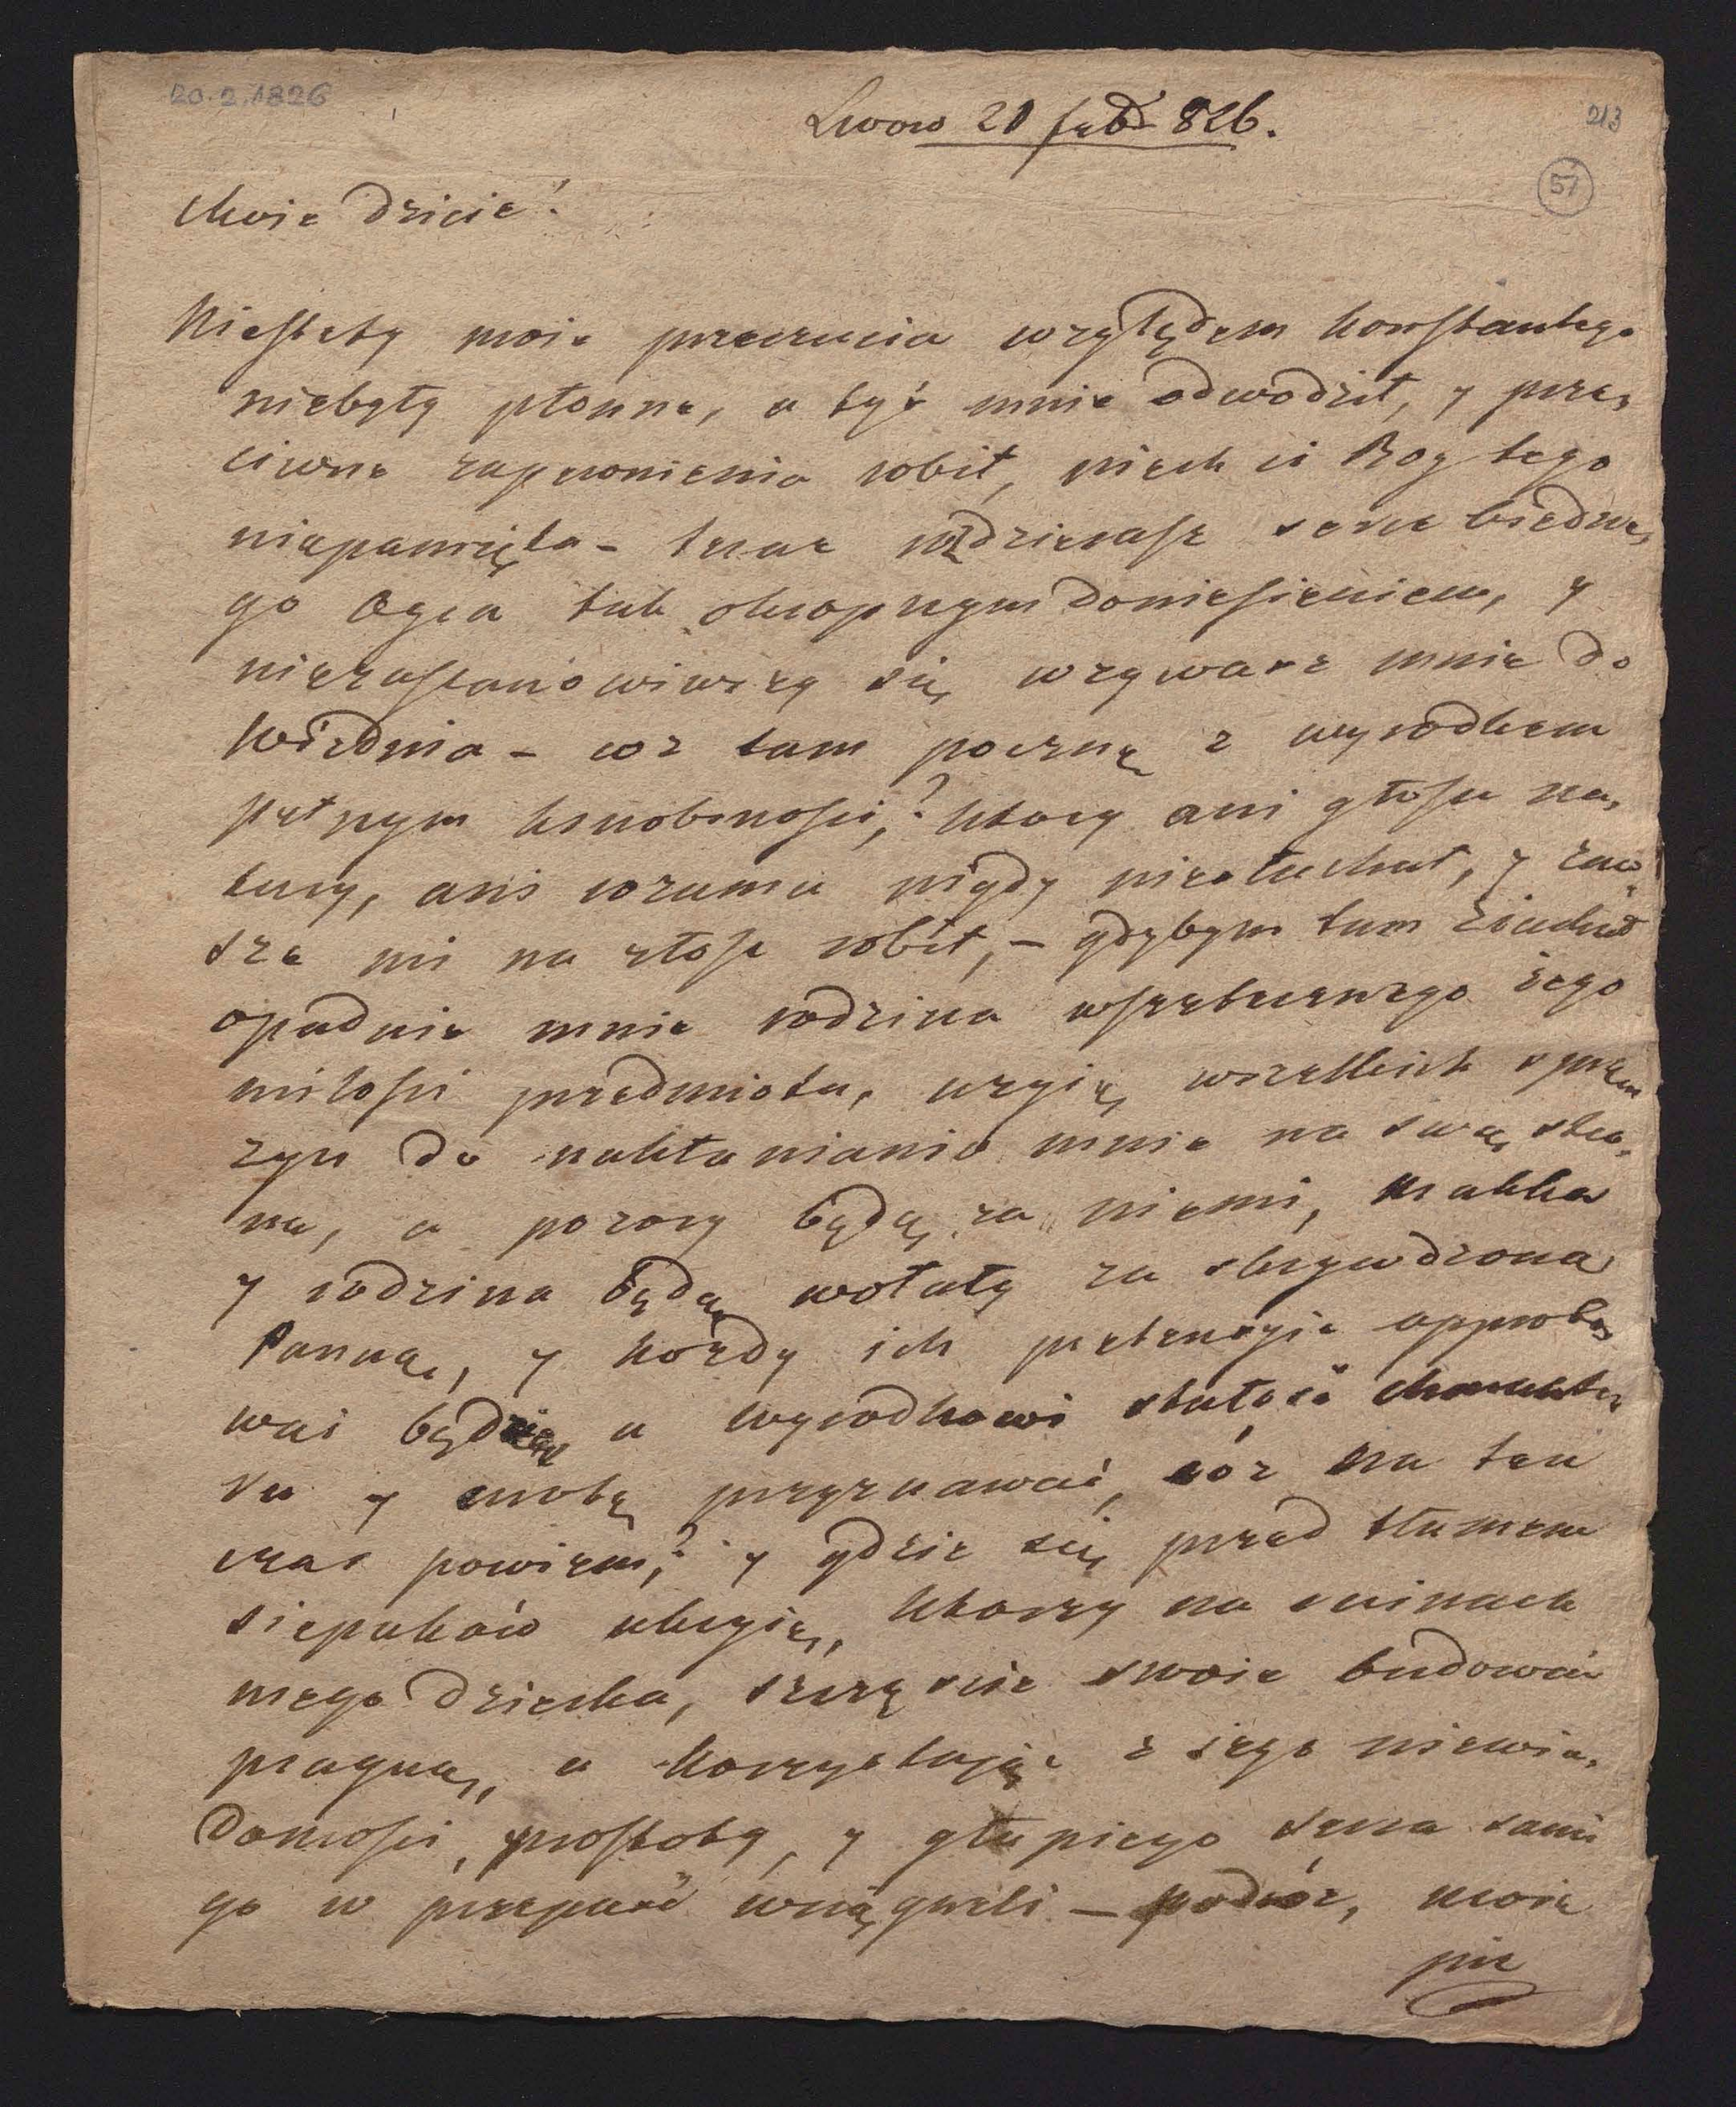 20.2.1826
Lwow 20 febr 826.
213
57
Moie dziecie!
Niestety moie przeczucia względem Konstantego
niebyły płonne, a tyś mnie odwodził, y prze,
ciwne zapewnienia robił, niech ci Bog tego
niepamięta - teraz rozdzierasz serce biedne,
go Oyca tak okropnym doniesieniem, y
niezastanowiwszy się wzywasz mnie do
Wiednia - coz tam pocznę z wyrodkem
pełnym krnobrności,? ktory ani głosu na,
tury, ani rozumu nigdy niesłuchał, y zaw,
sze mi na złość robił, - gdybym tam ziechał
opadnie mnie rodzina wszetecznego iego
miłości przedmiotu, uzyią wszelkich spręz
zyn do nakłaniania mnie na swą stro,
nę, a pozory będą za niemi, matka
y rodzina będą wołały za skrzywdzoną
Panną, y kozdy ich pretensyie approbo,
wać będzie, a wyrodkowi stałość charakte,
ru y cnotę przyznawać, cóz na ten
czas powiem,? y gdzie się przed tłumem
siepaków ukryię, ktorzy na ruinach
mego dziecka, szczęscie swoie budować
pragną, a korzystając z iego niewia,
domości, prostoty, y głupiego serca sami
go w przepaść wciągneli - podróz, moie
pie